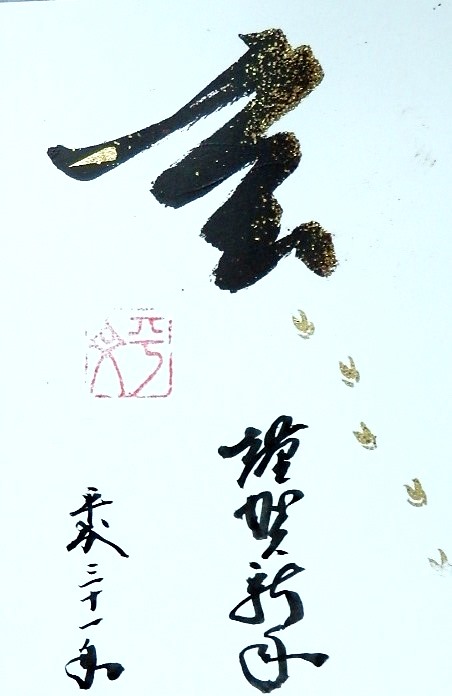 亥
謹賀新年
平成三十一年